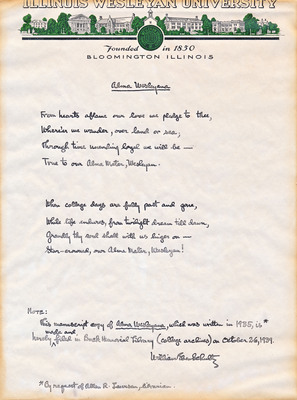 ILLINOIS WESLEYAN UNIVERSITY
Founded in 1850
BLOOMINGTON ILLINOIS
Alma Wesleyana
From hearts aflame our love we pledge to thee,
Where'er we wander, over land or sea;
Through time unending loyal we will be —
True to our Alma Mater, Wesleyan.
When college days are fully past and gone,
While life endures, from twilight gleam till dawn,
Grandly thy soul shall with us linger on —
Star-crowned, our Alma Mater, Wesleyan!
NOTE:
This manuscript copy of Alma Wesleyana, which was written in 1935, is*
made and
hereby filed in Buck Memorial Library (college archives) on October 26, 1939.
William
*By request of Librarian.